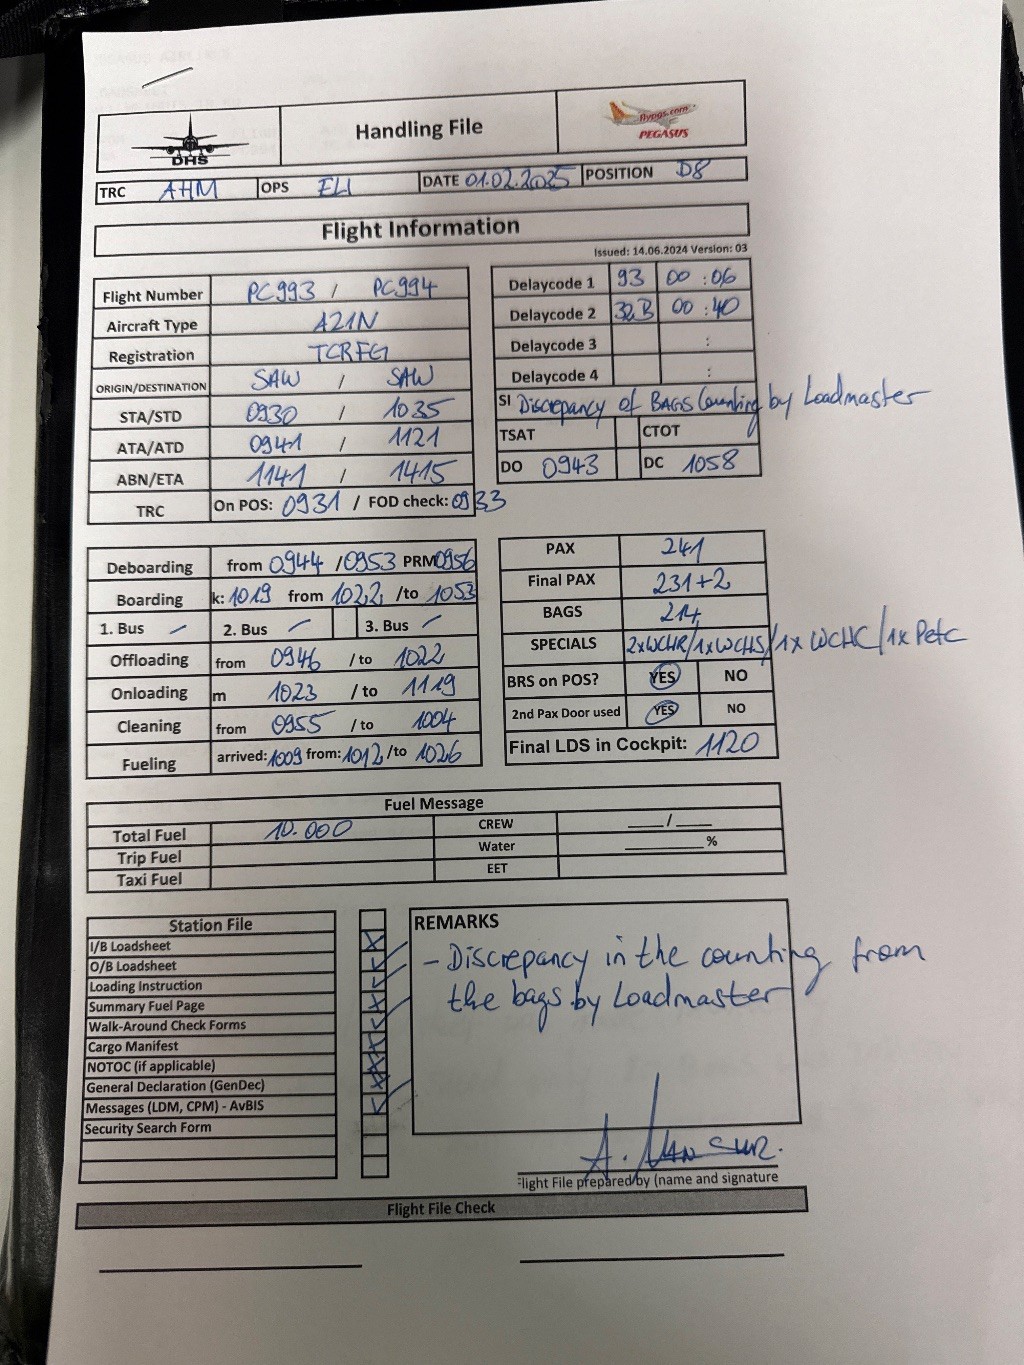 DHS
Handling File
flypgs.com
PEGASUS
TRC AHM OPS ELI DATE 01.02.2025 POSITION D8
Flight Information
Issued: 14.06.2024 Version: 03
Flight Number PC993 / PC994
Aircraft Type A21N
Registration TCRFG
ORIGIN/DESTINATION SAW / SAW
STA/STD 0930 / 1035
ATA/ATD 0941 / 1121
ABN/ETA 1141 / 1415
TRC On POS: 0931 / FOD check: 0933
Delaycode 1 93 00 : 06
Delaycode 2 32B 00 : 40
Delaycode 3 :
Delaycode 4 :
SI Discrepancy of BAGS Counting by Loadmaster
TSAT CTOT
DO 0943 DC 1058
Deboarding from 0944 / 0953 PRM 0956
Boarding k: 1019 from 1022 /to 1053
1. Bus / 2. Bus / 3. Bus /
Offloading from 0946 / to 1022
Onloading m 1023 / to 1119
Cleaning from 0955 / to 1004
Fueling arrived: 1009 from: 1012 /to 1026
PAX 241
Final PAX 231+2
BAGS 214
SPECIALS 2xWCHR/1xWCHS/1x WCHC/1x Petc
BRS on POS? YES NO
2nd Pax Door used YES NO
Final LDS in Cockpit: 1120
Fuel Message
Total Fuel 10.000 CREW ____/____
Trip Fuel Water ________%
Taxi Fuel EET
Station File
I/B Loadsheet
O/B Loadsheet
Loading Instruction
Summary Fuel Page
Walk-Around Check Forms
Cargo Manifest
NOTOC (if applicable)
General Declaration (GenDec)
Messages (LDM, CPM) - AvBIS
Security Search Form
REMARKS
- Discrepancy in the counting from
the bags by Loadmaster
A. Mansur.
Flight File prepared by (name and signature
Flight File Check